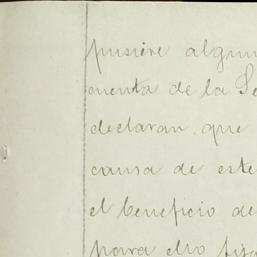 pusiere algun
menta de la Se
declaran que
causa de este
el beneficio de
para ello fija